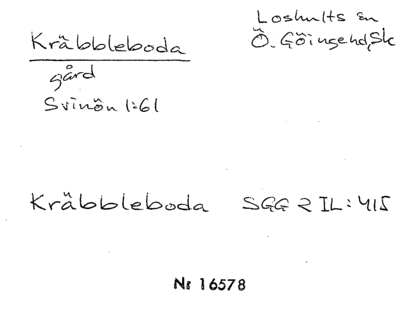 Kräbbleboda
Loshults sn
Ö. Göingehd, Sk
gård
Svinön 1:61
Kräbbleboda SGG 2 IL: 415
Nr 16578